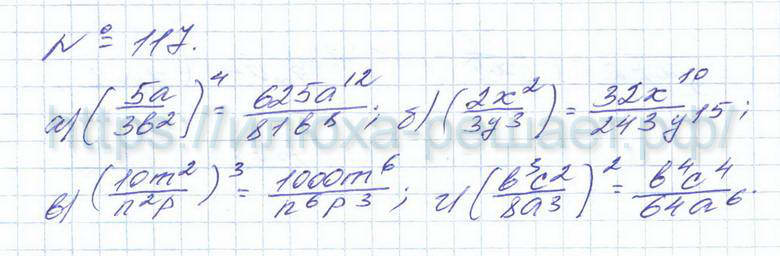 № 117.
а) (5a/3b²)⁴ = 625a¹²/81b⁸; б) (2x²/3y³) = 32x¹⁰/243y15;
в) (10m²/n²p)³ = 1000m⁶/n⁶p³; г) (b³c²/8a³)² = b⁴c⁴/64a⁶.